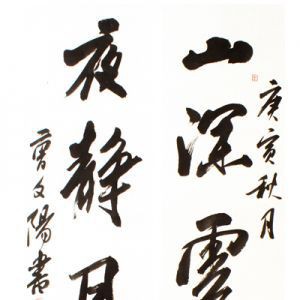 庚寅秋月
山深雲
夜静月
曾文陽書